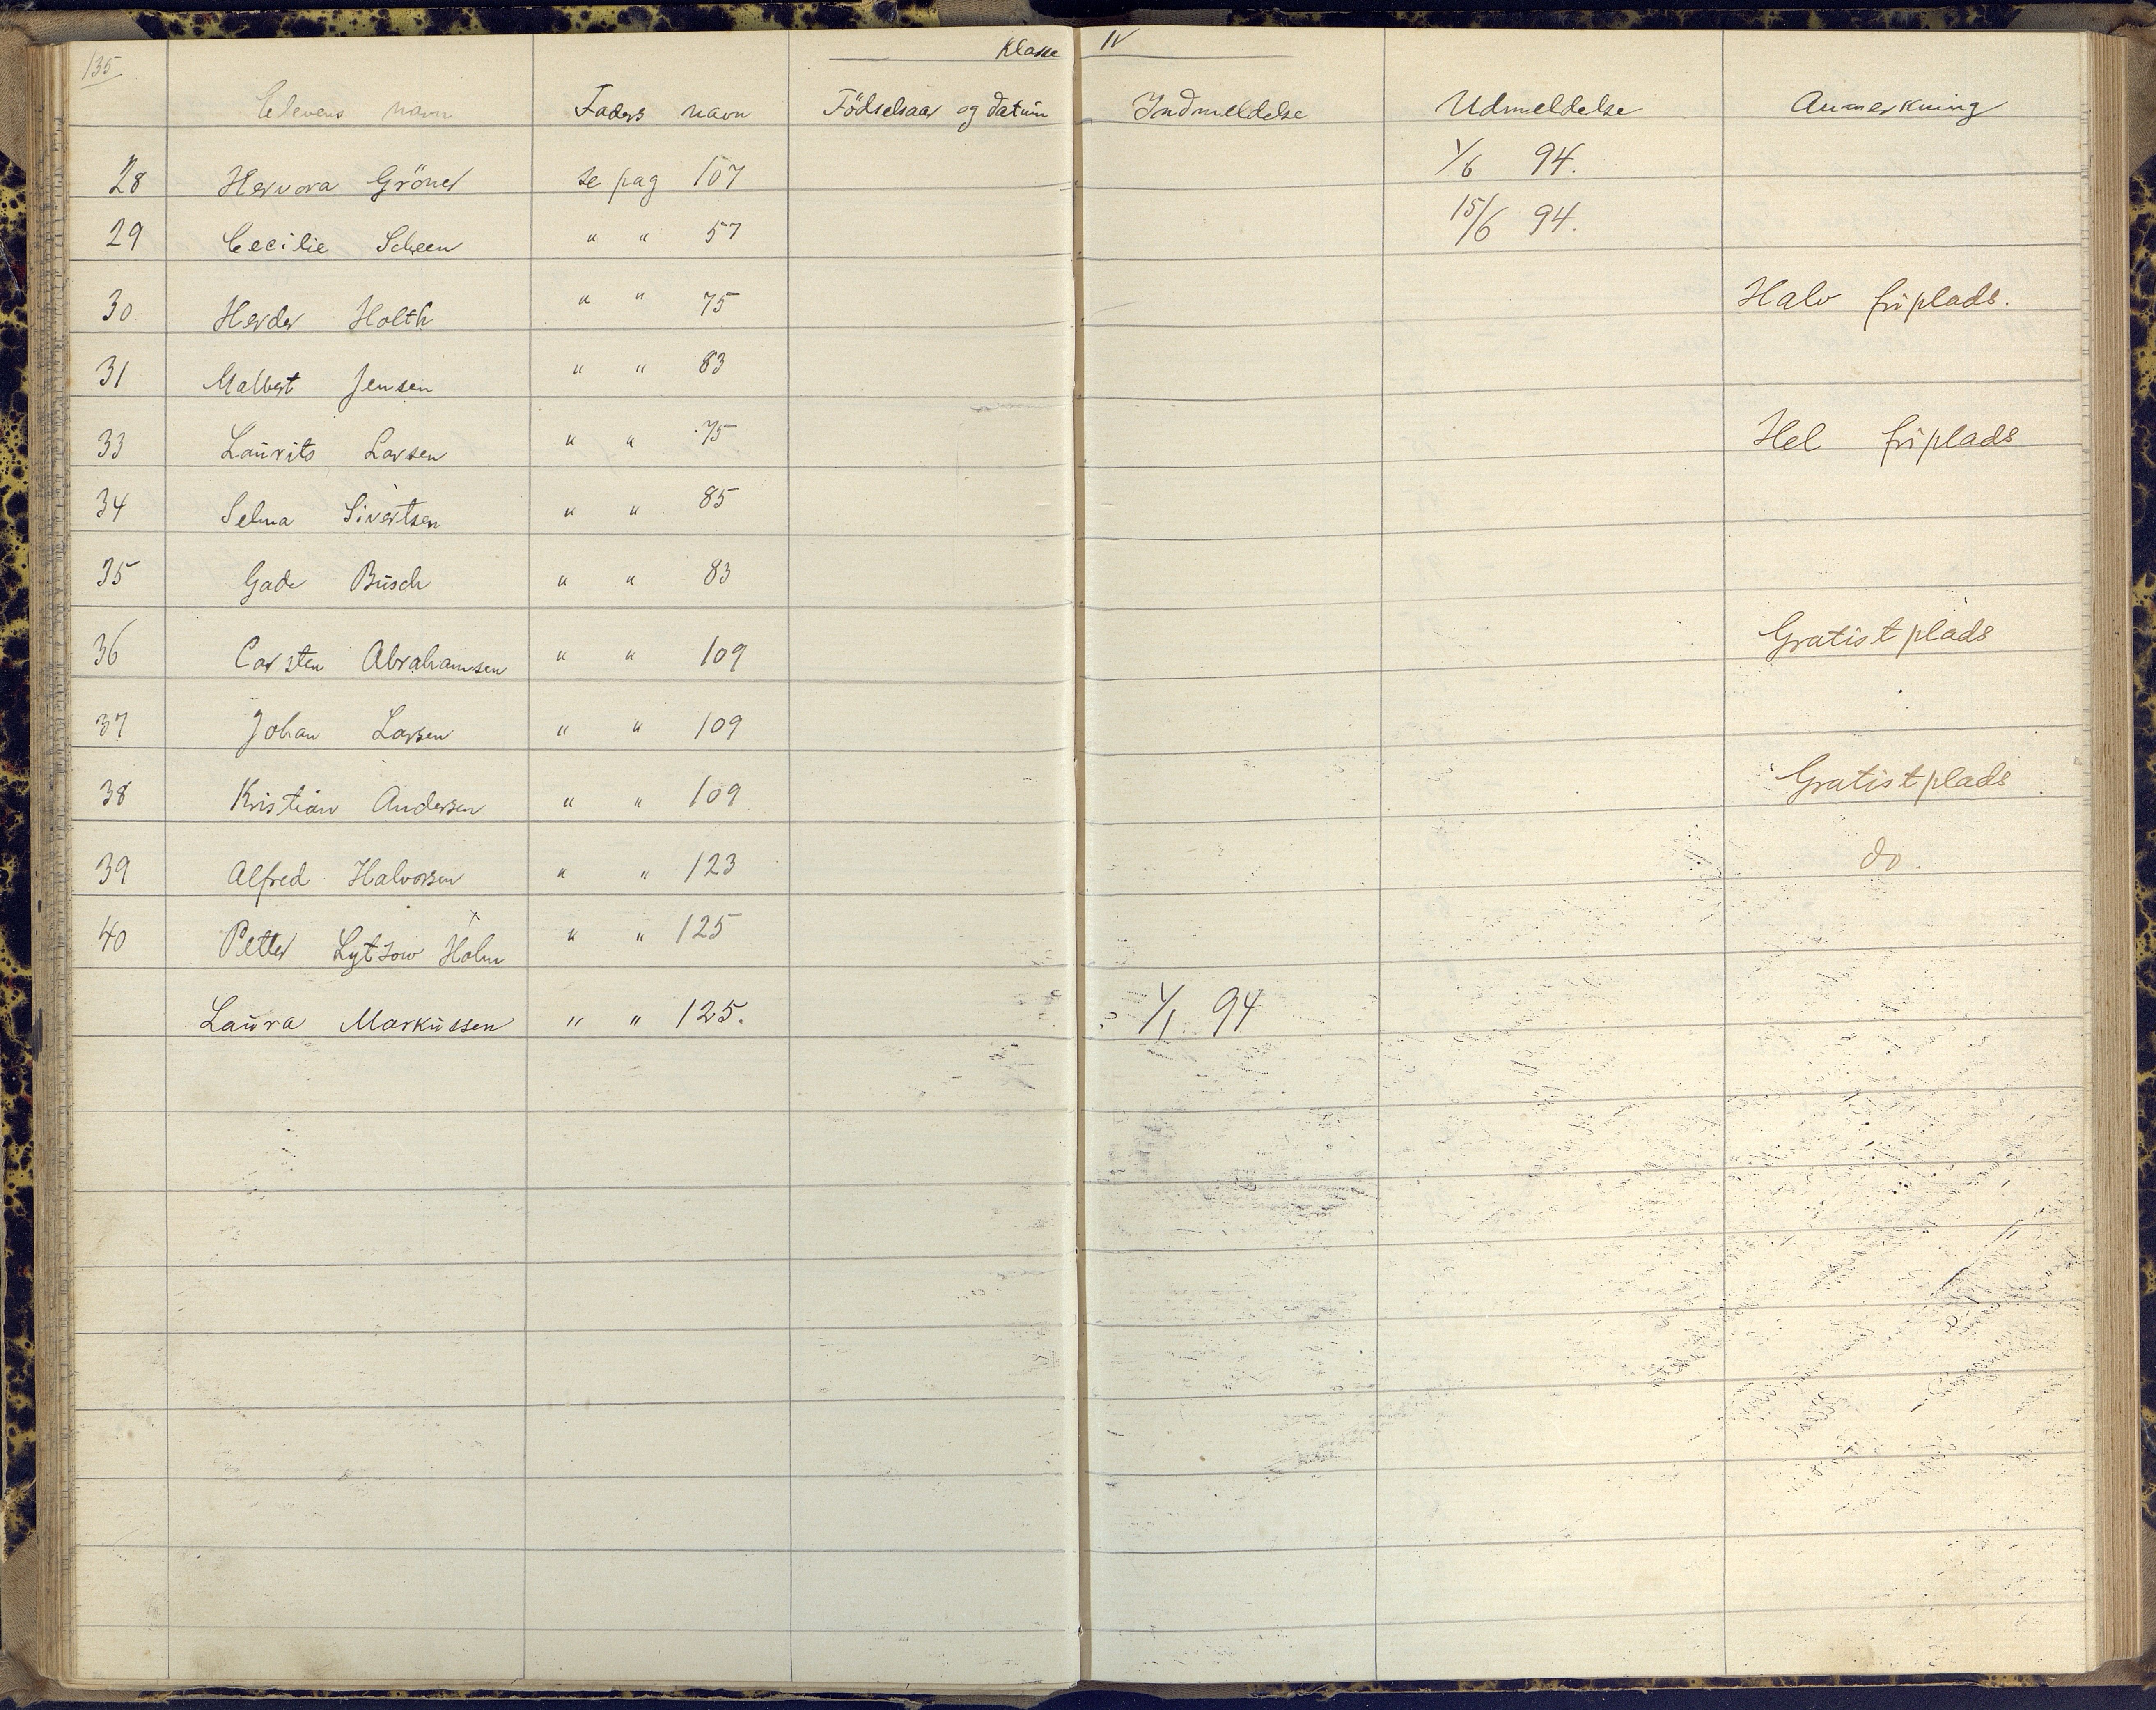 135
Klasse IV
Elevens navn Faders navn Födselsaar og datum Indmeldelse Udmeldelse Anmerkning
28 Hervora Gröner se pag 107 1/6 94.
29 Cecilie Scheen " " 57 15/6 94.
30 Herder Holth " " 75 Halv friplads.
31 Malbert Jensen " " 83
33 Laurits Larsen " " 75 Hel friplads
34 Selma Sivertsen " " 85
35 Gade Busch " " 83
36 Carsten Abrahamsen " " 109 Gratist plads
37 Johan Larsen " " 109
38 Kristian Andersen " " 109 Gratist plads
39 Alfred Halvorsen " " 123 do.
40 Petter Lytzow Holm x " " 125
Laura Markussen " " 125. 1/1. 94